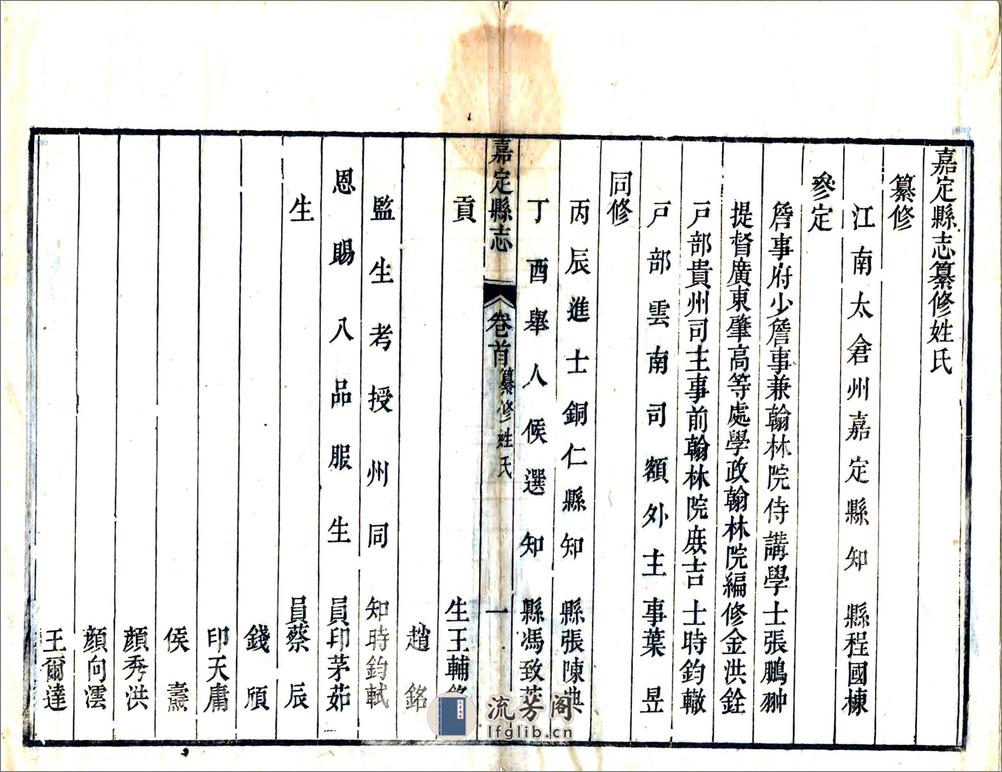 嘉定縣志纂修姓氏
纂修
江南太倉州嘉定縣知縣程國棟
參定
詹事府少詹事兼翰林院侍講學士張鵬翀
提督廣東肇高等處學政翰林院編修金洪銓
戶部貴州司主事前翰林院庶吉士時鈞轍
戶部雲南司額外主事葉昱
同修
丙辰進士銅仁縣知縣張陳典
丁酉舉人候選知縣馮致
嘉定縣志
卷首
纂修姓氏
一
貢生王輔銘
趙銘
監生考授州同知時鈞軾
恩賜八品服生員印茅茹
生員蔡辰
錢頎
印天庸
侯燾
顏秀洪
顏向澐
王爾達
流芳阁
lfglib.cn